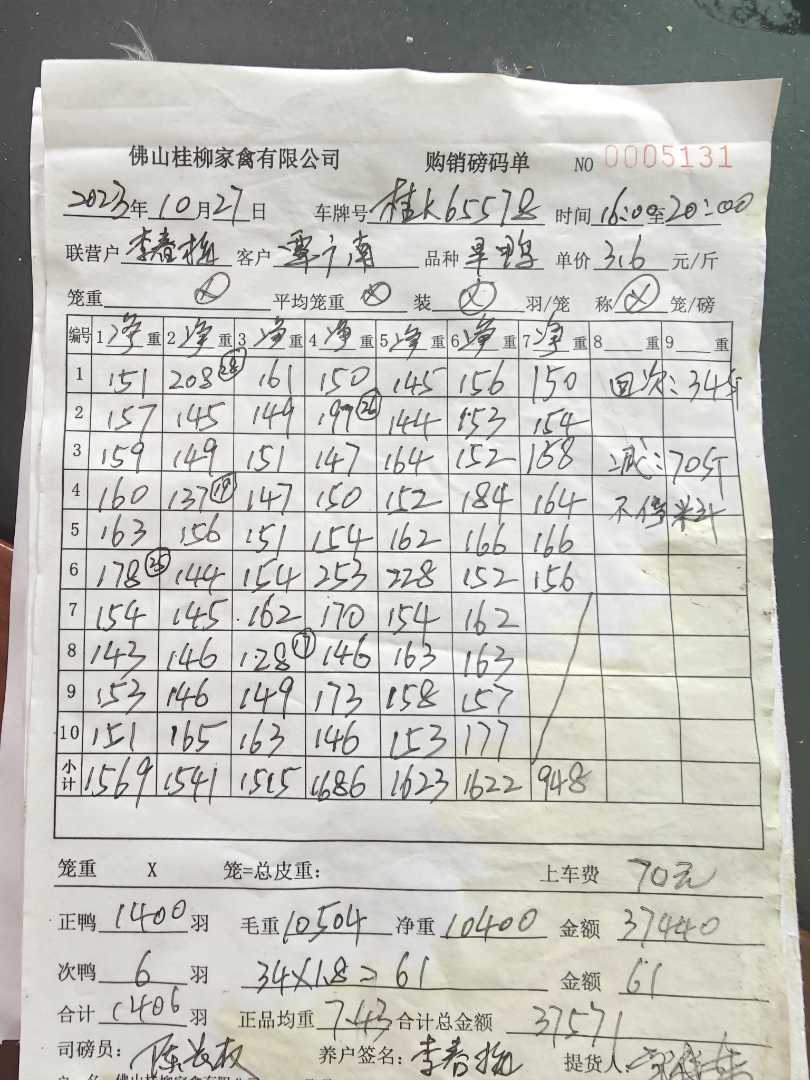 佛山桂柳家禽有限公司 购销磅码单 NO 0005131
2023年10月27日 车牌号 桂K65578 时间 16:00至20:00
联营户 李春梅 客户 覃广南 品种 旱鸭 单价 3.6 元/斤
笼重 平均笼重 装 羽/笼 称 笼/磅
编号 1净重 2净重 3净重 4净重 5净重 6净重 7净重 8 重 9 重
1 151 208 28 161 150 145 156 150 回次:34斤
2 157 145 149 197 26 144 153 154
3 159 149 151 147 164 152 158 减:70斤
4 160 137 19 147 150 152 184 164 不停料
5 163 156 151 154 162 166 166
6 178 25 144 154 253 228 152 156
7 154 145 162 170 154 162
8 143 146 128 17 146 163 163
9 153 146 149 173 158 157
10 151 165 163 146 153 177
小计 1569 1541 1515 1686 1623 1622 948
笼重 X 笼=总皮重: 上车费 70元
正鸭 1400 羽 毛重 10504 净重 10400 金额 37440
次鸭 6 羽 34×1.8=61 金额 61
合计 1406 羽 正品均重 7.43 合计总金额 37571
司磅员: 养户签名: 李春梅 提货人:
户 名 佛山桂柳家禽有限公司